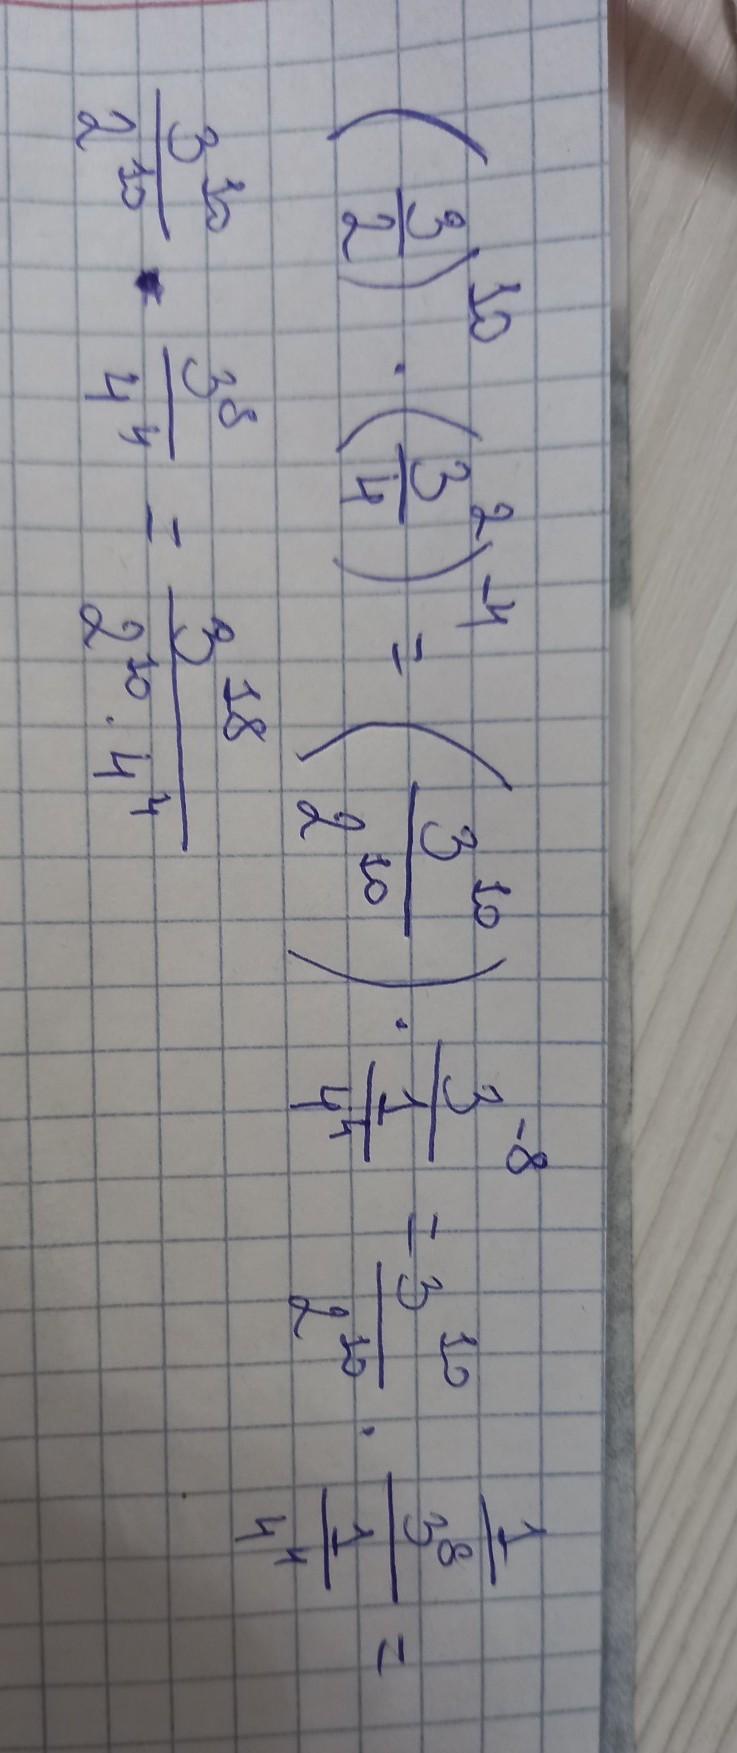 (3/2)^10 · (3^2/4)^-4 = (3^10/2^10) · 3^-8/(1/4^4) = 3^10/2^10 · (1/3^8)/(1/4^4) =
3^10/2^10 · 3^8/4^4 = 3^18/(2^10 · 4^4)